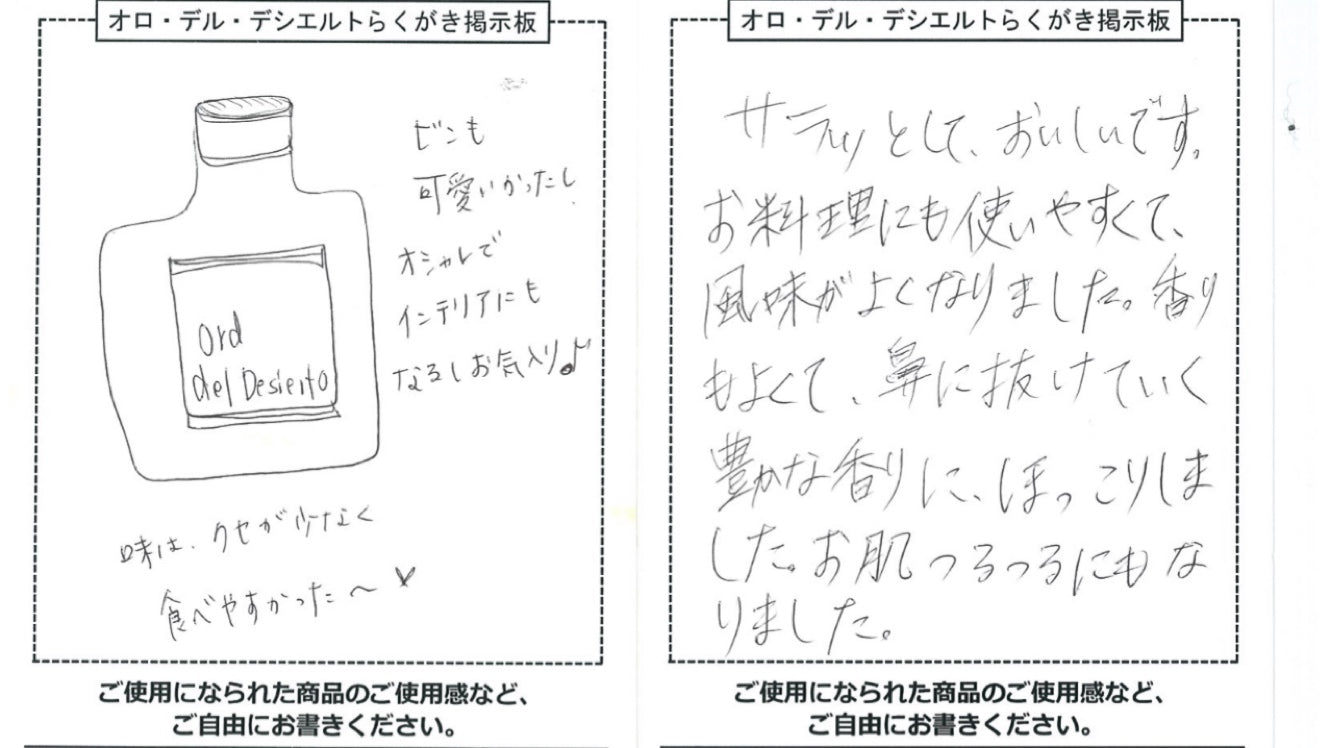 オロ・デル・デシエルトらくがき掲示板
ビンも
可愛いかったし
オシャレで
インテリアにも
なるしお気入り♪
Ord
del Desierto
味は、クセが少なく
食べやすかった〜♥
ご使用になられた商品のご使用感など、
ご自由にお書きください。
オロ・デル・デシエルトらくがき掲示板
サラッとして、おいしいです。
お料理にも使いやすくて、
風味がよくなりました。香り
もよくて、鼻に抜けていく
豊かな香りに、ほっこりしま
した。お肌つるつるにもな
りました。
ご使用になられた商品のご使用感など、
ご自由にお書きください。